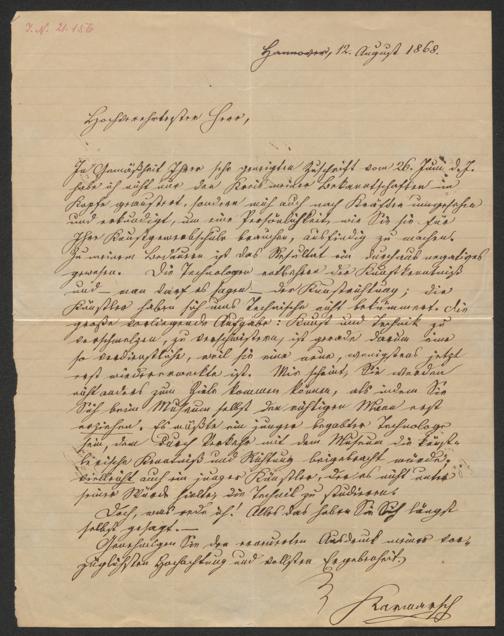 J. N. 21.156
Hannover, 12. August 1868.
Hochverehrtester Herr,
In Gemäßheit Ihrer sehr geneigten Zuschrift vom 26. Juni d. J.
habe ich nicht nur den Kreis meiner Bekanntschaften im
Kopfe gemustert, sondern mich auch nach Kräften umgesehen
und erkundigt, um eine Persönlichkeit, wie Sie sie für
Ihre Kunstgewerbschule brauchen, ausfindig zu machen.
Zu meinem Bedauern ist das Resultat ein durchaus negatives
gewesen. Die Technologen entbehren die Kunstkenntniß
und – man darf es sagen – der Kunstrichtung; die
Künstler haben sich ums Technische nicht bekümmert. Die
große vorliegende Aufgabe: Kunst und Technik zu
verschmelzen, zu verschwistern, ist gerade darum eine
so verdienstliche, weil sie eine neue, wenigstens jetzt
erst wiedererweckte ist. Mir scheint, Sie werden
nicht anders zum Ziele kommen können, als indem Sie
Sich beim Museum selbst den richtigen Mann erst
erziehen. Es müßte ein junger begabter Technologe
sein, dem durch Verkehr mit dem Museum die künst-
lerische Kenntniß und Richtung beigebracht würde;
vielleicht auch ein junger Künstler, der es nicht unter
seiner Würde hielte, die Technik zu studieren.
Doch, was rede ich! Alles das haben Sie Sich längst
selbst gesagt. —
Genehmigen Sie den erneuerten Ausdruck meiner vor-
züglichsten Hochachtung und vollsten Ergebenheit.
Karmarsch